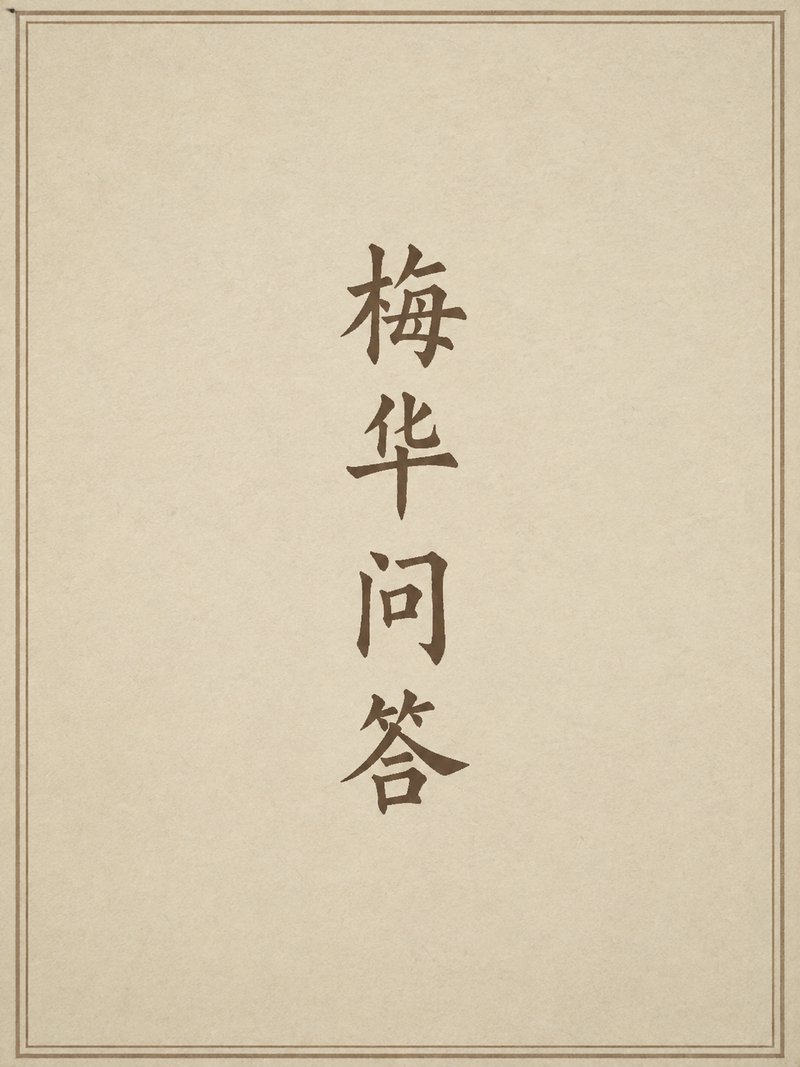 梅华问答